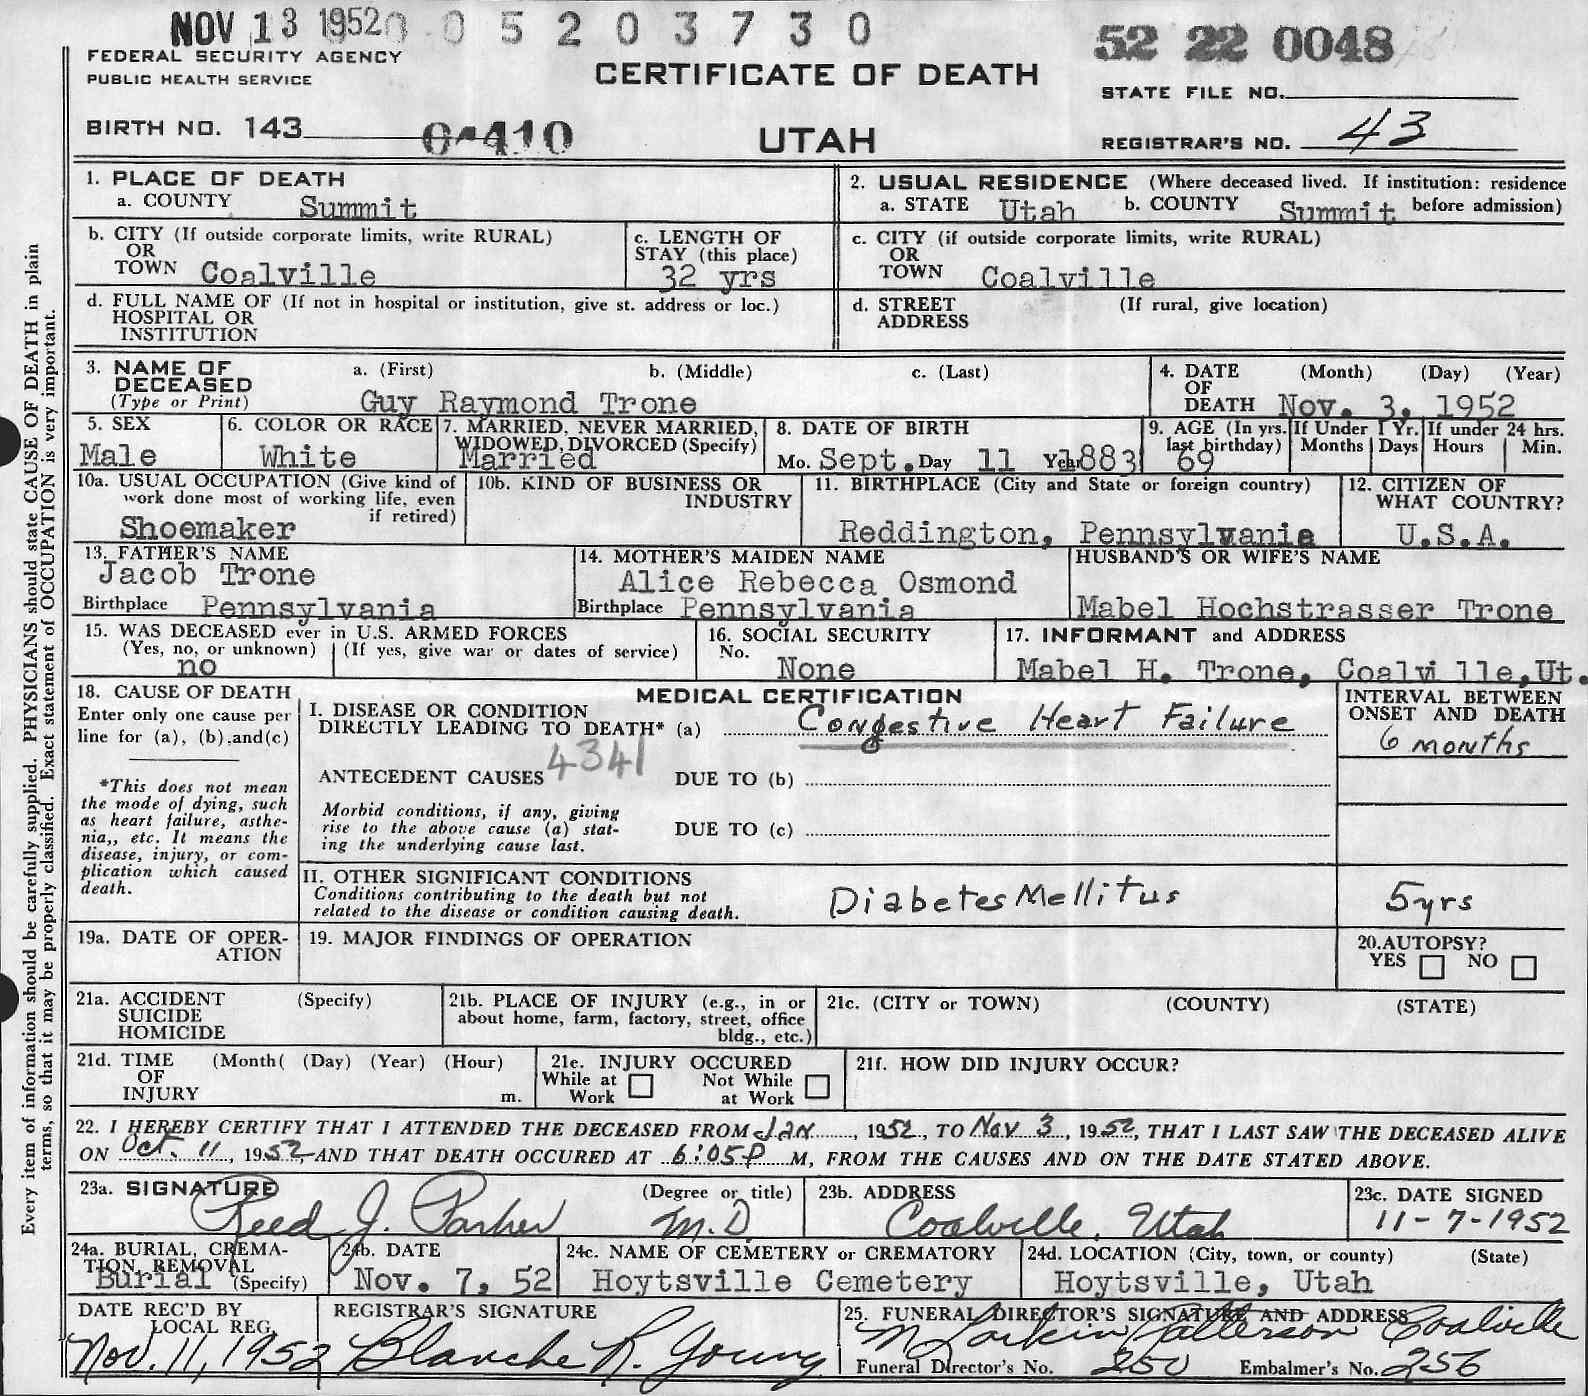 NOV 13 1952 0 5 2 0 3 7 3 0
52 22 0048
FEDERAL SECURITY AGENCY
PUBLIC HEALTH SERVICE
CERTIFICATE OF DEATH
STATE FILE NO.
BIRTH NO. 143
UTAH
REGISTRAR'S NO. 43
1. PLACE OF DEATH
a. COUNTY Summit
2. USUAL RESIDENCE (Where deceased lived. If institution: residence
a. STATE Utah b. COUNTY Summit before admission)
b. CITY (If outside corporate limits, write RURAL)
OR
TOWN Coalville
c. LENGTH OF
STAY (this place)
32 yrs
c. CITY (if outside corporate limits, write RURAL)
OR
TOWN Coalville
d. FULL NAME OF (If not in hospital or institution, give st. address or loc.)
HOSPITAL OR
INSTITUTION
d. STREET (If rural, give location)
ADDRESS
3. NAME OF a. (First) b. (Middle) c. (Last)
DECEASED
(Type or Print) Guy Raymond Trone
4. DATE (Month) (Day) (Year)
OF
DEATH Nov. 3. 1952
5. SEX
Male
6. COLOR OR RACE
White
7. MARRIED, NEVER MARRIED,
WIDOWED, DIVORCED (Specify)
Married
8. DATE OF BIRTH
Mo. Sept. Day 11 Year 1883
9. AGE (In yrs.
last birthday)
69
If Under 1 Yr.
Months Days
If under 24 hrs.
Hours Min.
10a. USUAL OCCUPATION (Give kind of
work done most of working life, even
if retired)
Shoemaker
10b. KIND OF BUSINESS OR
INDUSTRY
11. BIRTHPLACE (City and State or foreign country)
Reddington, Pennsylvania
12. CITIZEN OF
WHAT COUNTRY?
U.S.A.
13. FATHER'S NAME
Jacob Trone
Birthplace Pennsylvania
14. MOTHER'S MAIDEN NAME
Alice Rebecca Osmond
Birthplace Pennsylvania
HUSBAND'S OR WIFE'S NAME
Mabel Hochstrasser Trone
15. WAS DECEASED ever in U.S. ARMED FORCES
(Yes, no, or unknown) (If yes, give war or dates of service)
no
16. SOCIAL SECURITY
No.
None
17. INFORMANT and ADDRESS
Mabel H. Trone, Coalville, Ut.
18. CAUSE OF DEATH
Enter only one cause per
line for (a), (b), and (c)
*This does not mean
the mode of dying, such
as heart failure, asthe-
nia,, etc. It means the
disease, injury, or com-
plication which caused
death.
MEDICAL CERTIFICATION
I. DISEASE OR CONDITION
DIRECTLY LEADING TO DEATH* (a) Congestive Heart Failure
4341
ANTECEDENT CAUSES DUE TO (b)
Morbid conditions, if any, giving
rise to the above cause (a) stat-
ing the underlying cause last.
DUE TO (c)
INTERVAL BETWEEN
ONSET AND DEATH
6 months
II. OTHER SIGNIFICANT CONDITIONS
Conditions contributing to the death but not
related to the disease or condition causing death.
Diabetes Mellitus
5 yrs
19a. DATE OF OPER-
ATION
19. MAJOR FINDINGS OF OPERATION
20. AUTOPSY?
YES NO
21a. ACCIDENT (Specify)
SUICIDE
HOMICIDE
21b. PLACE OF INJURY (e.g., in or
about home, farm, factory, street, office
bldg., etc.)
21c. (CITY or TOWN) (COUNTY) (STATE)
21d. TIME (Month( (Day) (Year) (Hour)
OF
INJURY m.
21e. INJURY OCCURED
While at Not While
Work at Work
21f. HOW DID INJURY OCCUR?
22. I HEREBY CERTIFY THAT I ATTENDED THE DECEASED FROM Jan, 1952, TO Nov 3, 1952, THAT I LAST SAW THE DECEASED ALIVE
ON Oct. 11, 1952, AND THAT DEATH OCCURED AT 6:05P M, FROM THE CAUSES AND ON THE DATE STATED ABOVE.
23a. SIGNATURE (Degree or title)
Reed J. Parker M.D.
23b. ADDRESS
Coalville, Utah
23c. DATE SIGNED
11-7-1952
24a. BURIAL, CREMA-
TION, REMOVAL
Burial (Specify)
24b. DATE
Nov. 7, 52
24c. NAME OF CEMETERY or CREMATORY
Hoytsville Cemetery
24d. LOCATION (City, town, or county) (State)
Hoytsville, Utah
DATE REC'D BY
LOCAL REG.
Nov. 11, 1952
REGISTRAR'S SIGNATURE
Blanche R. Young
25. FUNERAL DIRECTOR'S SIGNATURE AND ADDRESS
M Larkin Patterson Coalville
Funeral Director's No. 250 Embalmer's No. 256
Every item of information should be carefully supplied. PHYSICIANS should state CAUSE OF DEATH in plain
terms, so that it may be properly classified. Exact statement of OCCUPATION is very important.